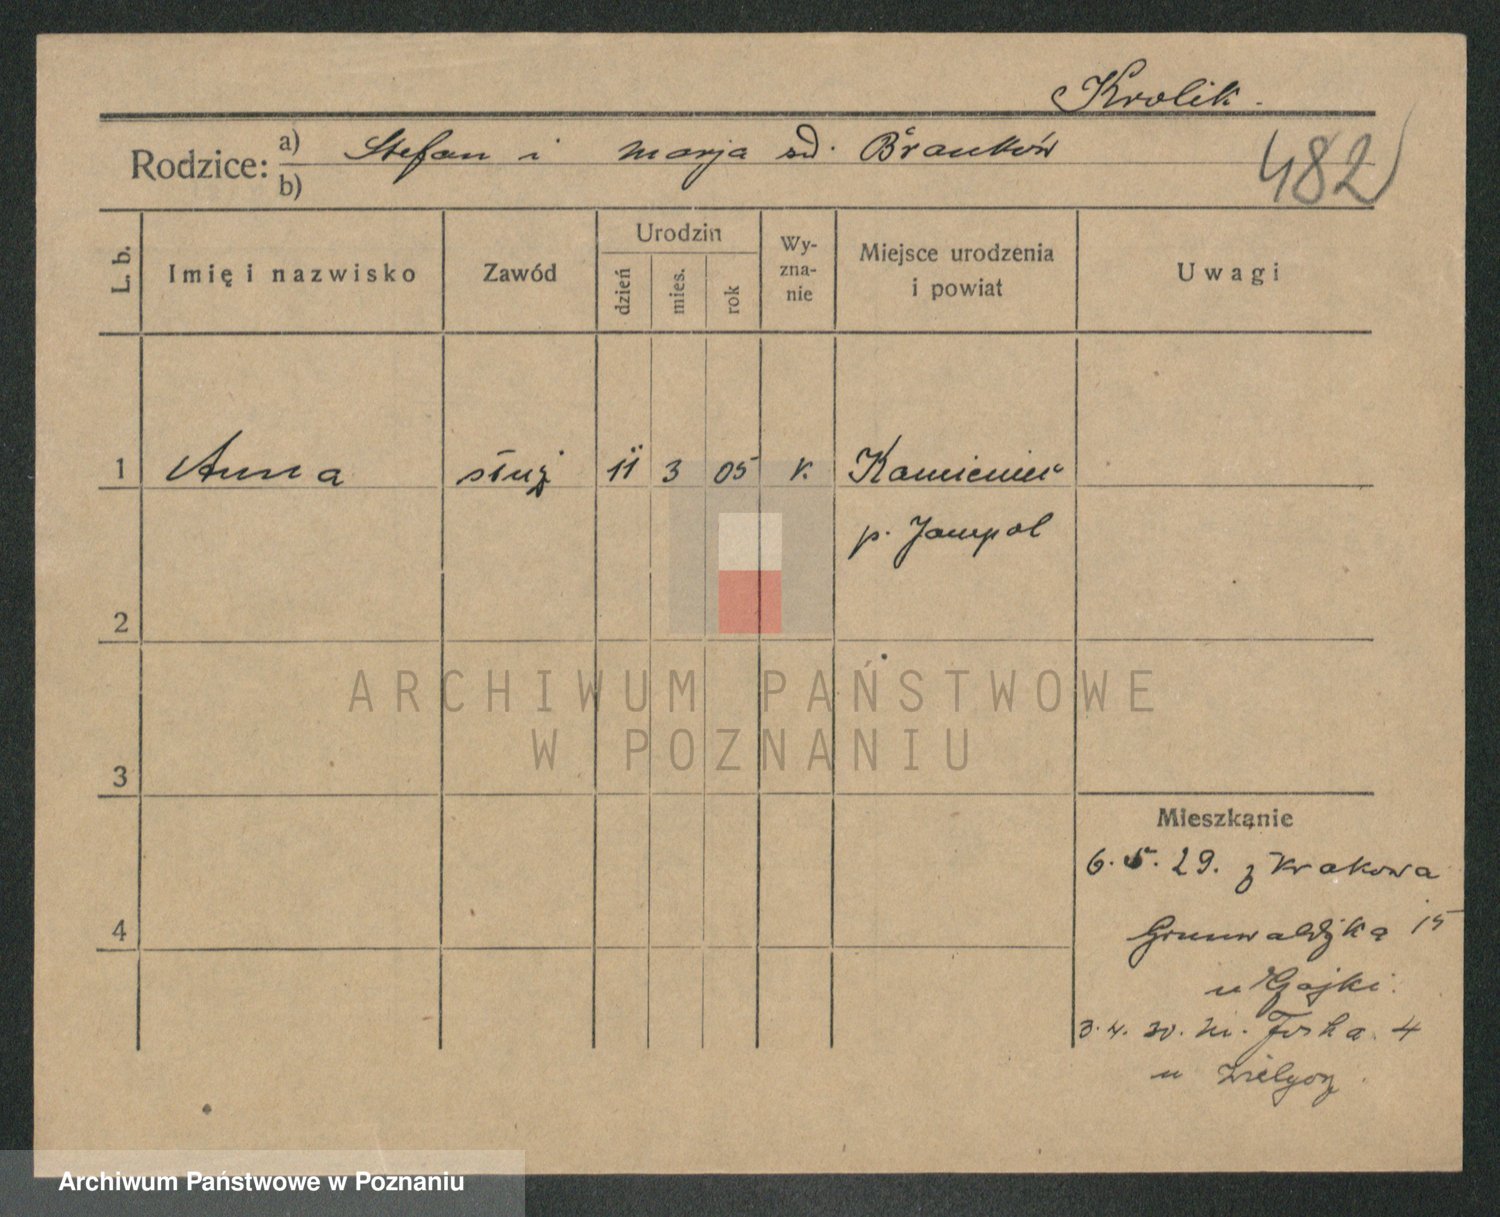 Krolik.
Rodzice: a) Stefan i Marja sd. Branków
b)
482
L. b. Imię i nazwisko Zawód Urodzin dzień mies. rok Wy-zna-nie Miejsce urodzenia i powiat Uwagi
1 Anna służ 11 3 05 k. Kamieniec
p. Jampol
2
ARCHIWUM PAŃSTWOWE
W POZNANIU
3
Mieszkanie
6. 5. 29. z Krakowa
4
Grunwaldzka 15
u Gajki.
3. 4. 30. 4
u
Archiwum Państwowe w Poznaniu